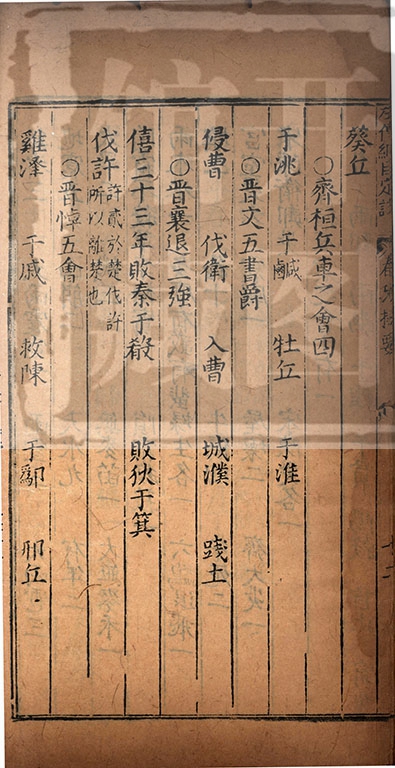 葵丘
○齊桓兵車之會四
于洮 于鹹 牡丘 于淮
○晉文五書爵
侵曹 伐衛 入曹 城濮 踐土
○晉襄退三強
僖三十三年敗秦于殽 敗狄于箕
伐許 許貳於楚伐許所以離楚也
○晉悼五會
雞澤 于戚 救陳 于鄬 邢丘